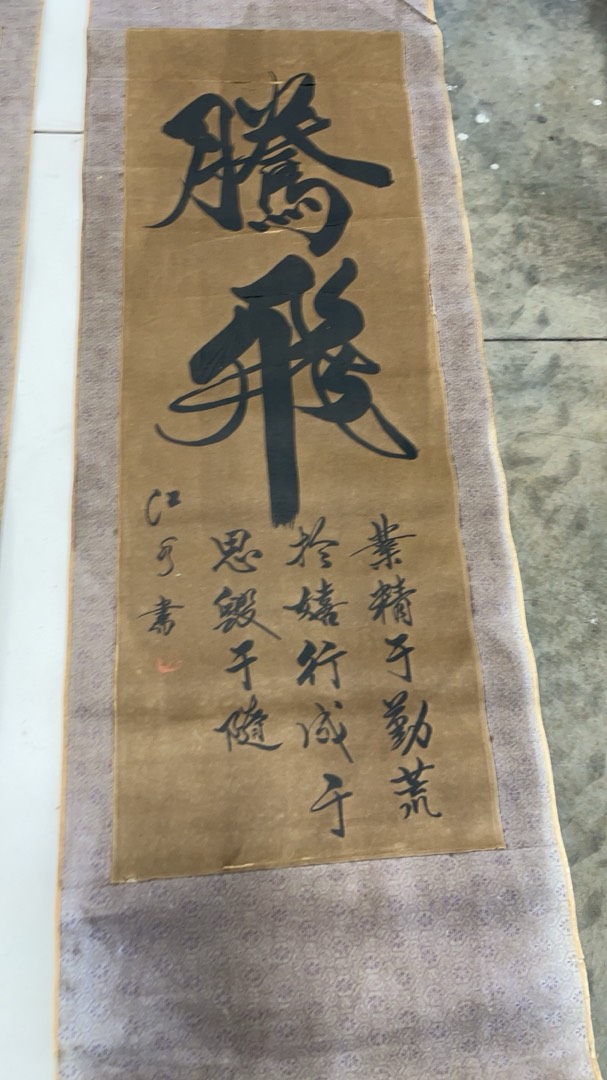 騰飛
業精于勤荒
於嬉行成于
思毀于隨
江可書